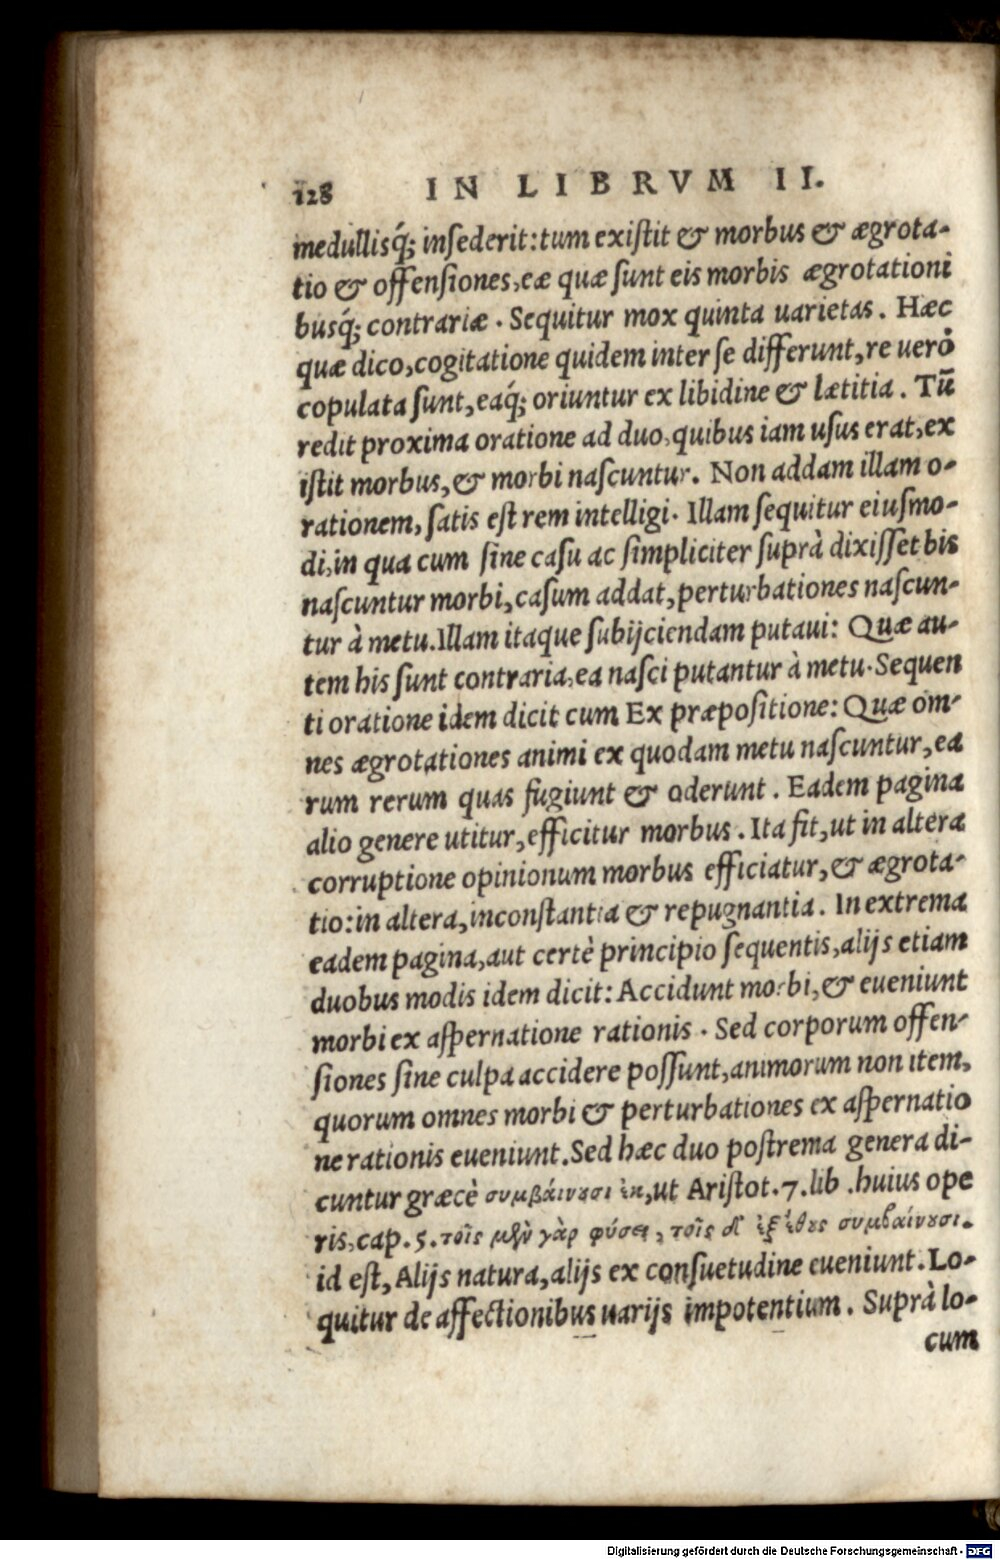 128 IN LIBRVM II.
medullisq́; insederit: tum existit & morbus & ægrota-
tio & offensiones, eæ quæ sunt eis morbis ægrotationi
busq́; contrariæ. Sequitur mox quinta uarietas. Hæc
quæ dico, cogitatione quidem inter se differunt, re uerò
copulata sunt, eaq́; oriuntur ex libidine & lætitia. Tū
redit proxima oratione ad duo, quibus iam usus erat, ex
istit morbus, & morbi nascuntur. Non addam illam o-
rationem, satis est rem intelligi. Illam sequitur eiusmo-
di, in qua cum sine casu ac simpliciter suprà dixisset his
nascuntur morbi, casum addat, perturbationes nascun-
tur à metu. Illam itaque subijciendam putaui: Quæ au-
tem his sunt contraria, ea nasci putantur à metu. Sequen
ti oratione idem dicit cum Ex præpositione: Quæ om-
nes ægrotationes animi ex quodam metu nascuntur, ea
rum rerum quas fugiunt & oderunt. Eadem pagina
alio genere utitur, efficitur morbus. Ita fit, ut in altera
corruptione opinionum morbus efficiatur, & ægrota-
tio: in altera, inconstantia & repugnantia. In extrema
eadem pagina, aut certè principio sequentis, alijs etiam
duobus modis idem dicit: Accidunt morbi, & eueniunt
morbi ex aspernatione rationis. Sed corporum offen-
siones sine culpa accidere possunt, animorum non item,
quorum omnes morbi & perturbationes ex aspernatio
ne rationis eueniunt. Sed hæc duo postrema genera di-
cuntur græcè συμβάινουσι ἐκ, ut Aristot. 7. lib. huius ope
ris, cap. 5. τοῖς μὲν γὰρ φύσει, τοῖς δ' ἐξ ἔθους συμβαίνουσι.
id est, Alijs natura, alijs ex consuetudine eueniunt. Lo-
quitur de affectionibus uarijs impotentium. Suprà lo-
cum
Digitalisierung gefördert durch die Deutsche Forschungsgemeinschaft - DFG